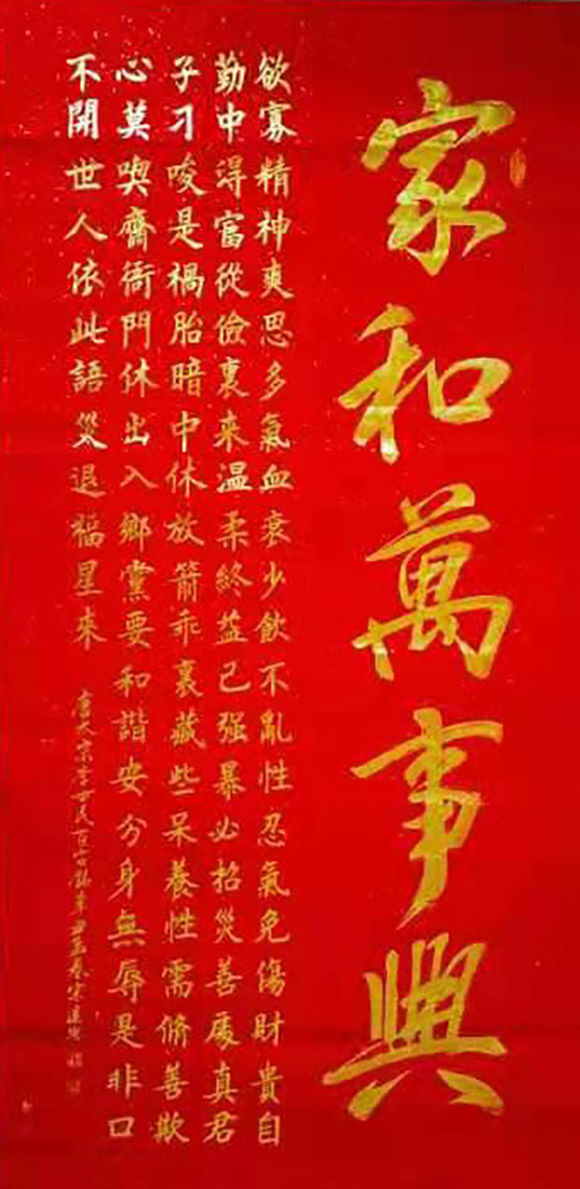 家和萬事興
欲寡精神爽思多氣血衰少飲不亂性忍氣免傷財貴自
勤中得富從儉裏来温柔終益己强暴必招災善處真君
子刁唆是禍胎暗中休放箭乖裏藏些呆養性需脩善欺
心莫喫齋衙門休出入鄉黨要和諧安分身無辱是非口
不開世人依此語災退福星来
唐太宗李世民百字銘辛丑年春宋